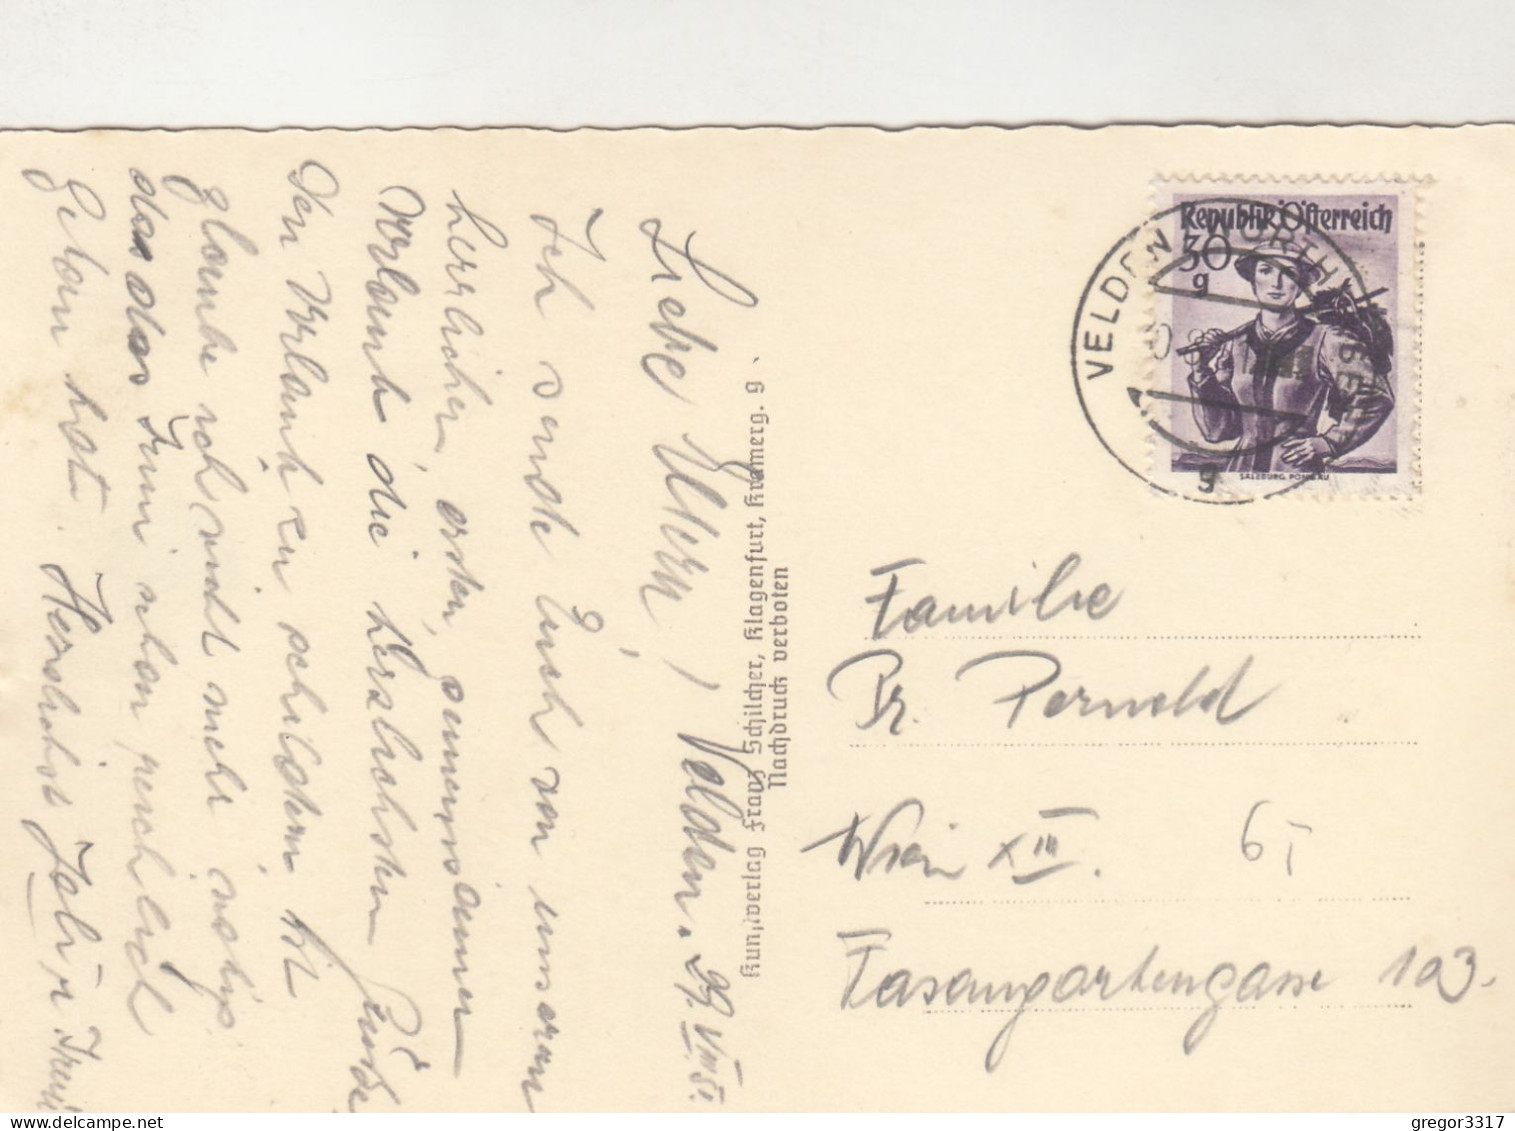 Liebe Eltern! Velden. 29. VIII. 51.
Ich sende Euch von unserem
herrlichen, ersten, gemeinsamen
Urlaub die herzlichsten Grüße
Den Urlaub zu schildern
glaube ich nicht mehr nötig
das Irmi schon reichlich
getan hat. Herzlichst
Kunstverlag Franz Schilcher, Klagenfurt, Kramerg. 9
Nachdruck verboten
Republik Österreich
30
g
SALZBURG, PONGAU
VELDEN WÖRTHERSEE
g
Familie
Pernold
Wien XIII.
Fasangartengasse 103.
gregor3317